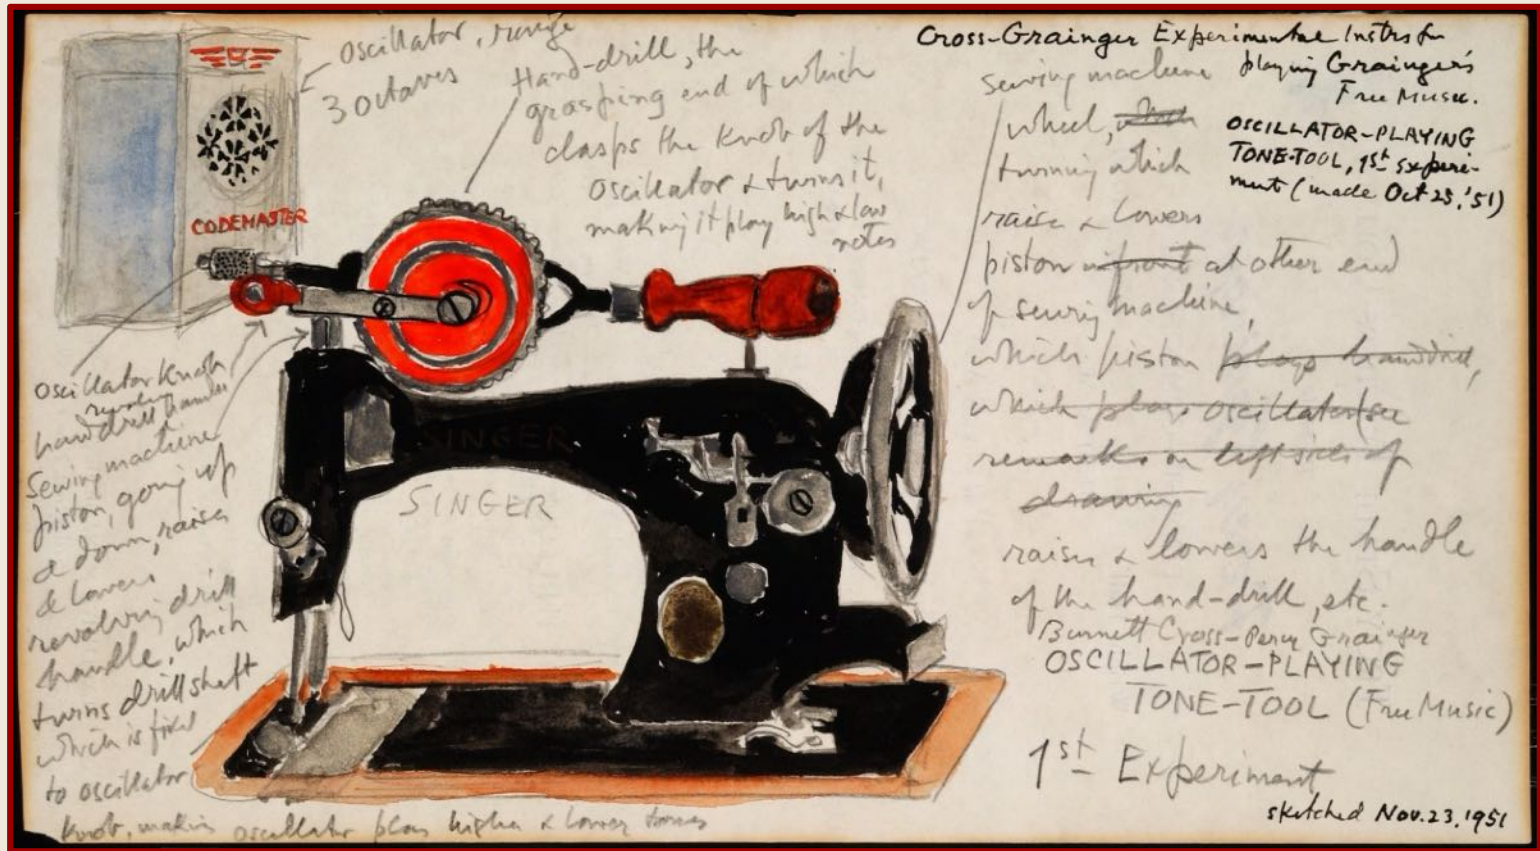 Oscillator, range
3 octaves
Hand-drill, the
grasping end of which
clasps the knob of the
oscillator & turns it,
making it play high & low
notes
Cross-Grainger Experimental Instrs for
playing Grainger's
Free Music.
OSCILLATOR-PLAYING
TONE-TOOL, 1st Experi-
ment (made Oct 25, '51)
sewing machine
wheel, which
turning which
raises & lowers
piston in front at other end
of sewing machine,
which piston plays handdrill,
which plays oscillator (see
remarks on left side of
drawing
raises & lowers the handle
of the hand-drill, etc.
Burnett Cross-Percy Grainger
OSCILLATOR-PLAYING
TONE-TOOL (Free Music)
1st Experiment
sketched Nov. 23, 1951
CODEMASTER
SINGER
SINGER
Oscillator Knob
revolving
hand drill handle
Sewing machine
piston, going up
& down, raises
& lowers
revolving drill
handle, which
turns drill shaft
which is fixed
to oscillator
knob, making oscillator play higher & lower tones